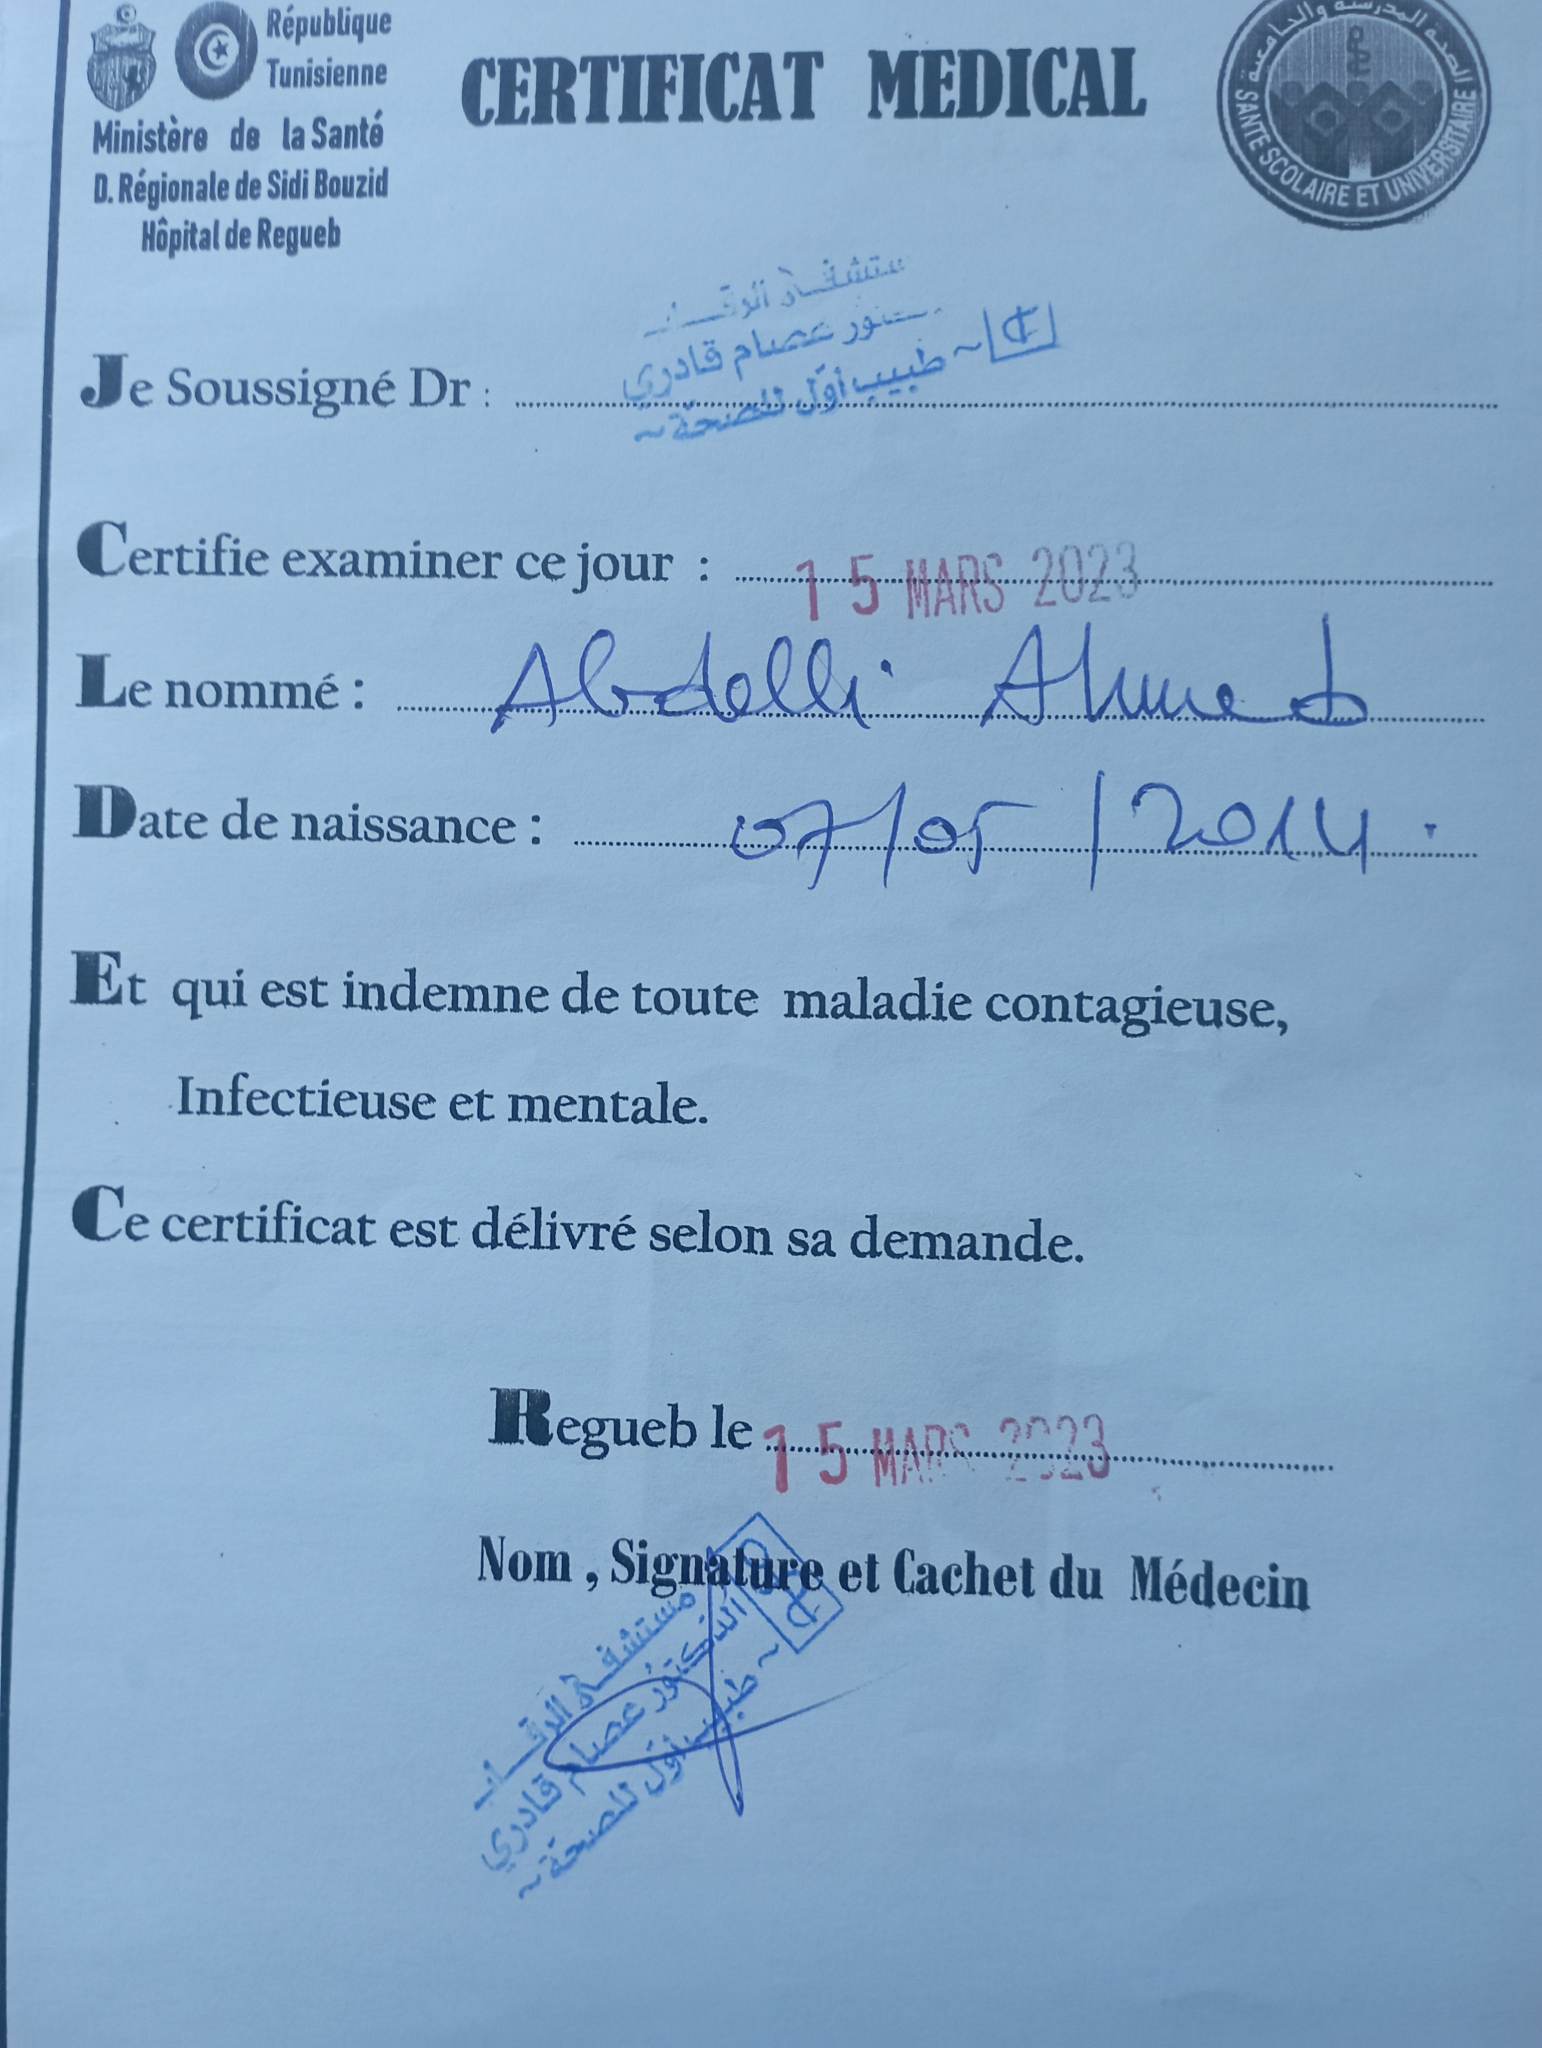 République
Tunisienne
Ministère de la Santé
D. Régionale de Sidi Bouzid
Hôpital de Regueb
CERTIFICAT MEDICAL
الصحة المدرسية والجامعية
SANTE SCOLAIRE ET UNIVERSITAIRE
Je Soussigné Dr :
عصام قادري
~ طبيب أوّل للصحّة ~
Certifie examiner ce jour : 15 MARS 2023
Le nommé : Abdelli Ahmed
Date de naissance : 07/05/2014.
Et qui est indemne de toute maladie contagieuse,
Infectieuse et mentale.
Ce certificat est délivré selon sa demande.
Regueb le 15 MARS 2023
Nom , Signature et Cachet du Médecin
مستشفى الرقاب
الدكتور عصام قادري
~ طبيب أوّل للصحّة ~